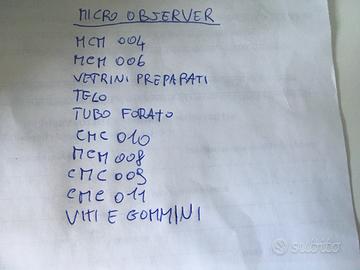 MICRO OBSERVER
MCM 004
MCM 006
VETRINI PREPARATI
TELO
TUBO FORATO
CMC 010
MCM 008
CMC 009
CMC 011
VITI E GOMMINI
subito